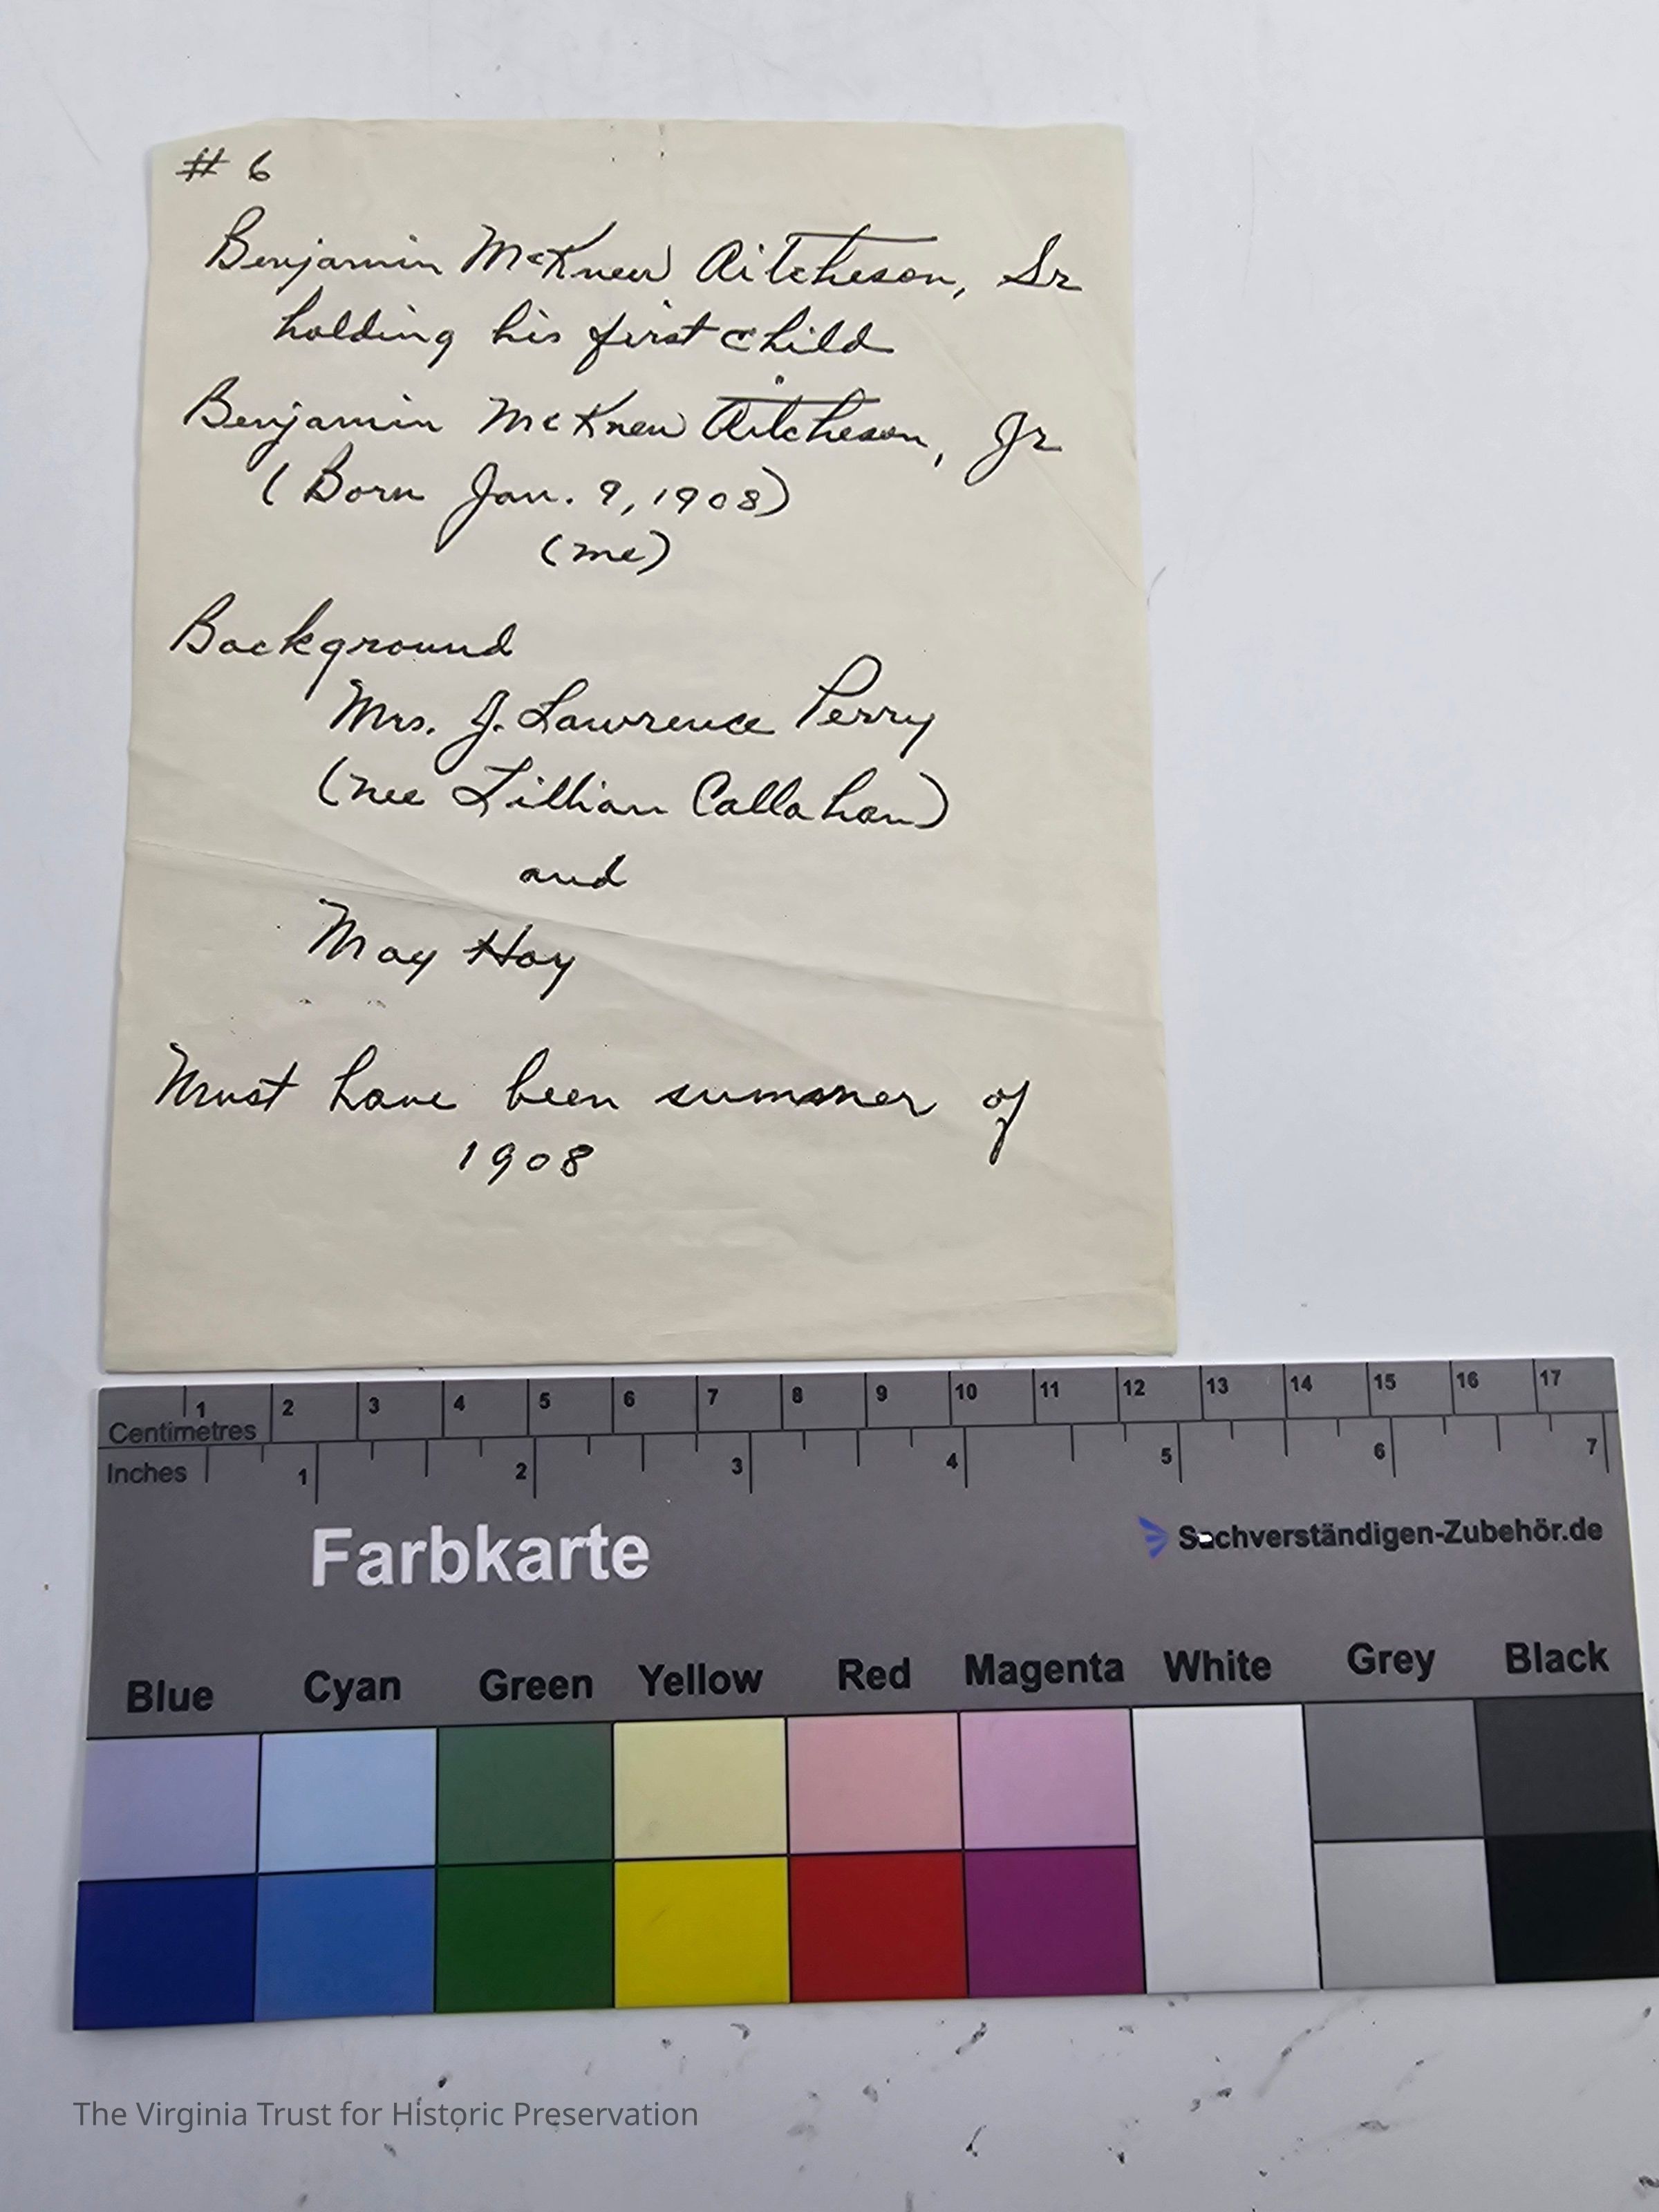 # 6
Benjamin McKnew Aitcheson, Sr
holding his first child
Benjamin McKnew Aitcheson, Jr
(Born Jan. 9, 1908)
(me)
Background
Mrs. J. Lawrence Perry
(nee Lillian Callahan)
and
May Hay
Must have been summer of
1908
1 2 3 4 5 6 7 8 9 10 11 12 13 14 15 16 17
Centimetres
Inches 1 2 3 4 5 6 7
Farbkarte
Sachverständigen-Zubehör.de
Blue Cyan Green Yellow Red Magenta White Grey Black
The Virginia Trust for Historic Preservation